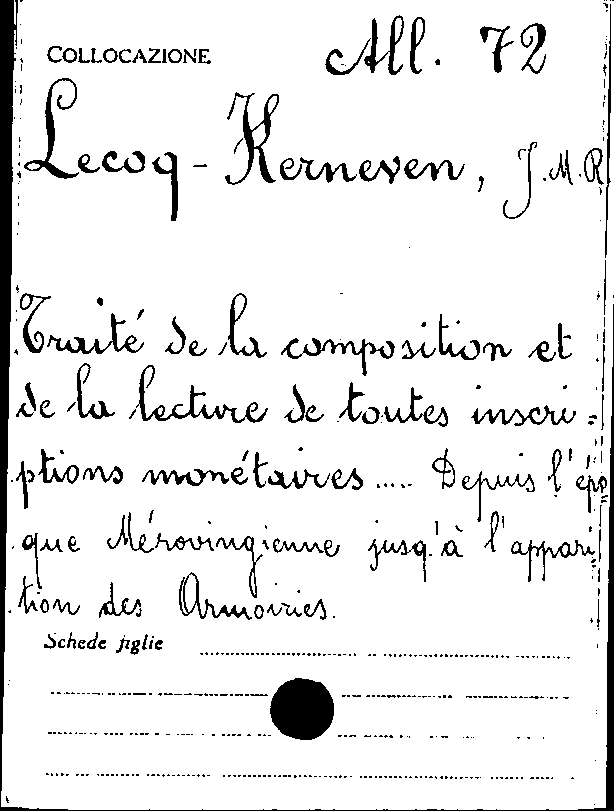 COLLOCAZIONE All. 72
Lecoq-Kerneven, J.M.R.
Traité de la composition et
de la lecture de toutes inscri=
ptions monétaires..... Depuis l'épo
que Mérovingienne jusq'à l'appari=
tion des Armoiries.
Schede figlie